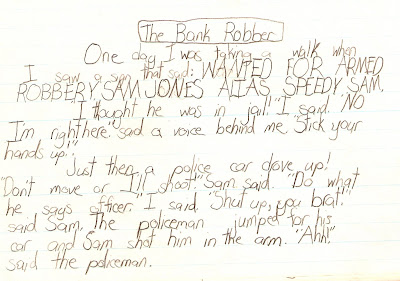 The Bank Robber
One day I was taking a walk when
I saw a sign that said: WANTED FOR ARMED
ROBBERY SAM JONES ALIAS SPEEDY SAM.
"I thought he was in jail." I said. "NO
I'm right here." said a voice behind me. "Stick your
hands up."
Just then a police car drove up!
"Don't move or I'll shoot." Sam said. "Do what
he says officer." I said. "Shut up, you brat."
said Sam. The policeman jumped for his
car and Sam shot him in the arm. "Ahh!"
said the policeman.